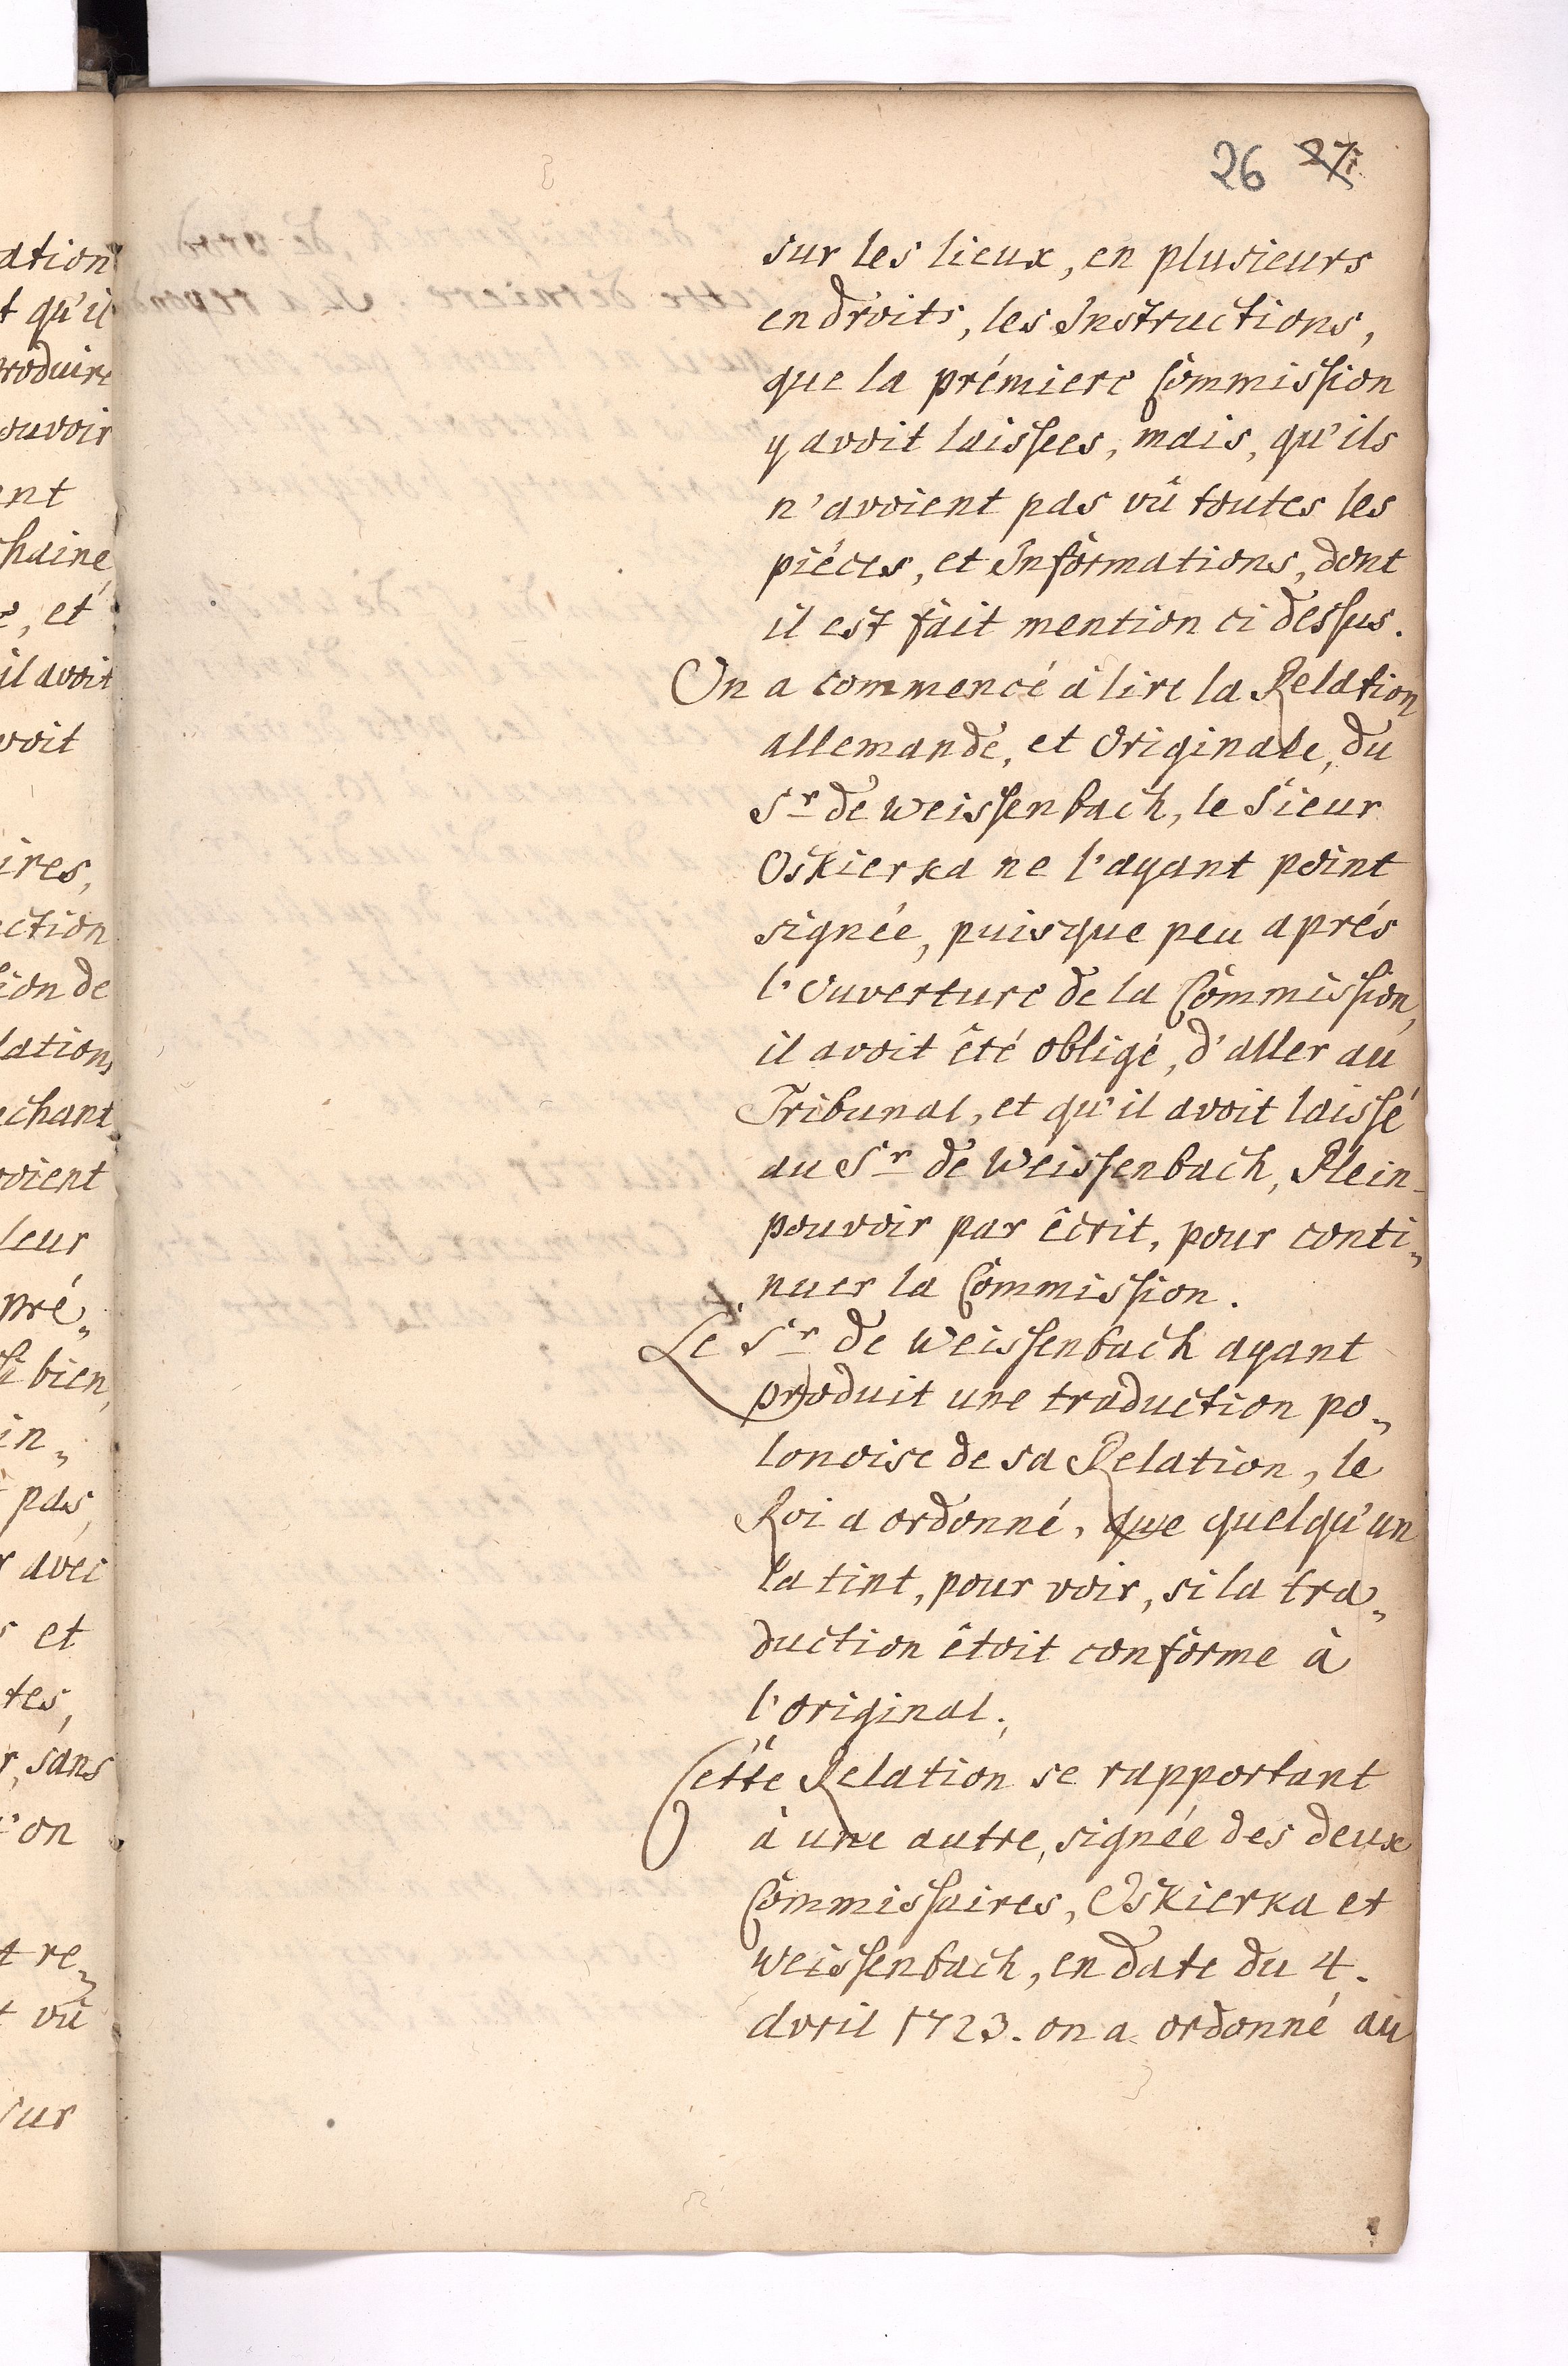 26 27.
sur les lieux, en plusieurs
endroits, les Instructions,
que la prémiere Commission
y avoit laissées, mais, qu'ils
n'avoient pas vû toutes les
piéces, et Informations, dont
il est fait mention ci dessus.
On a commencé à lire la Relation
allemande, et Originale, du
Sr de Weissenbach, le Sieur
Oskierka ne l'ayant point
signée, puisque peu aprés
l'Ouverture de la Commission,
il avoit êté obligé, d'aller au
Tribunal, et qu'il avoit laissé
au Sr de Weissenbach, Plein-
pouvoir par êcrit, pour conti„
nuer la Commission.
Le Sr de Weissenbach ayant
produit une traduction po„
lonoise de sa Relation, le
Roi a ordonné, que quelqu'un
la tint, pour voir, si la tra„
duction êtoit conforme à
l'original.
Cette Relation se rapportant
à une autre, signée des deux
Commissaires, Oskierka et
Weissenbach, en date du 4.
Avril 1723. on a ordonné au
ation
t qu'il
roduire
ouvoir
ent
haine,
, et
il avoit
voit
ires,
ction
ion de
lations
échant
oient
leur
pré„
bien,
in„
pas,
r avec
s et
tes,
r, sans
'on
t re„
t vû
sur